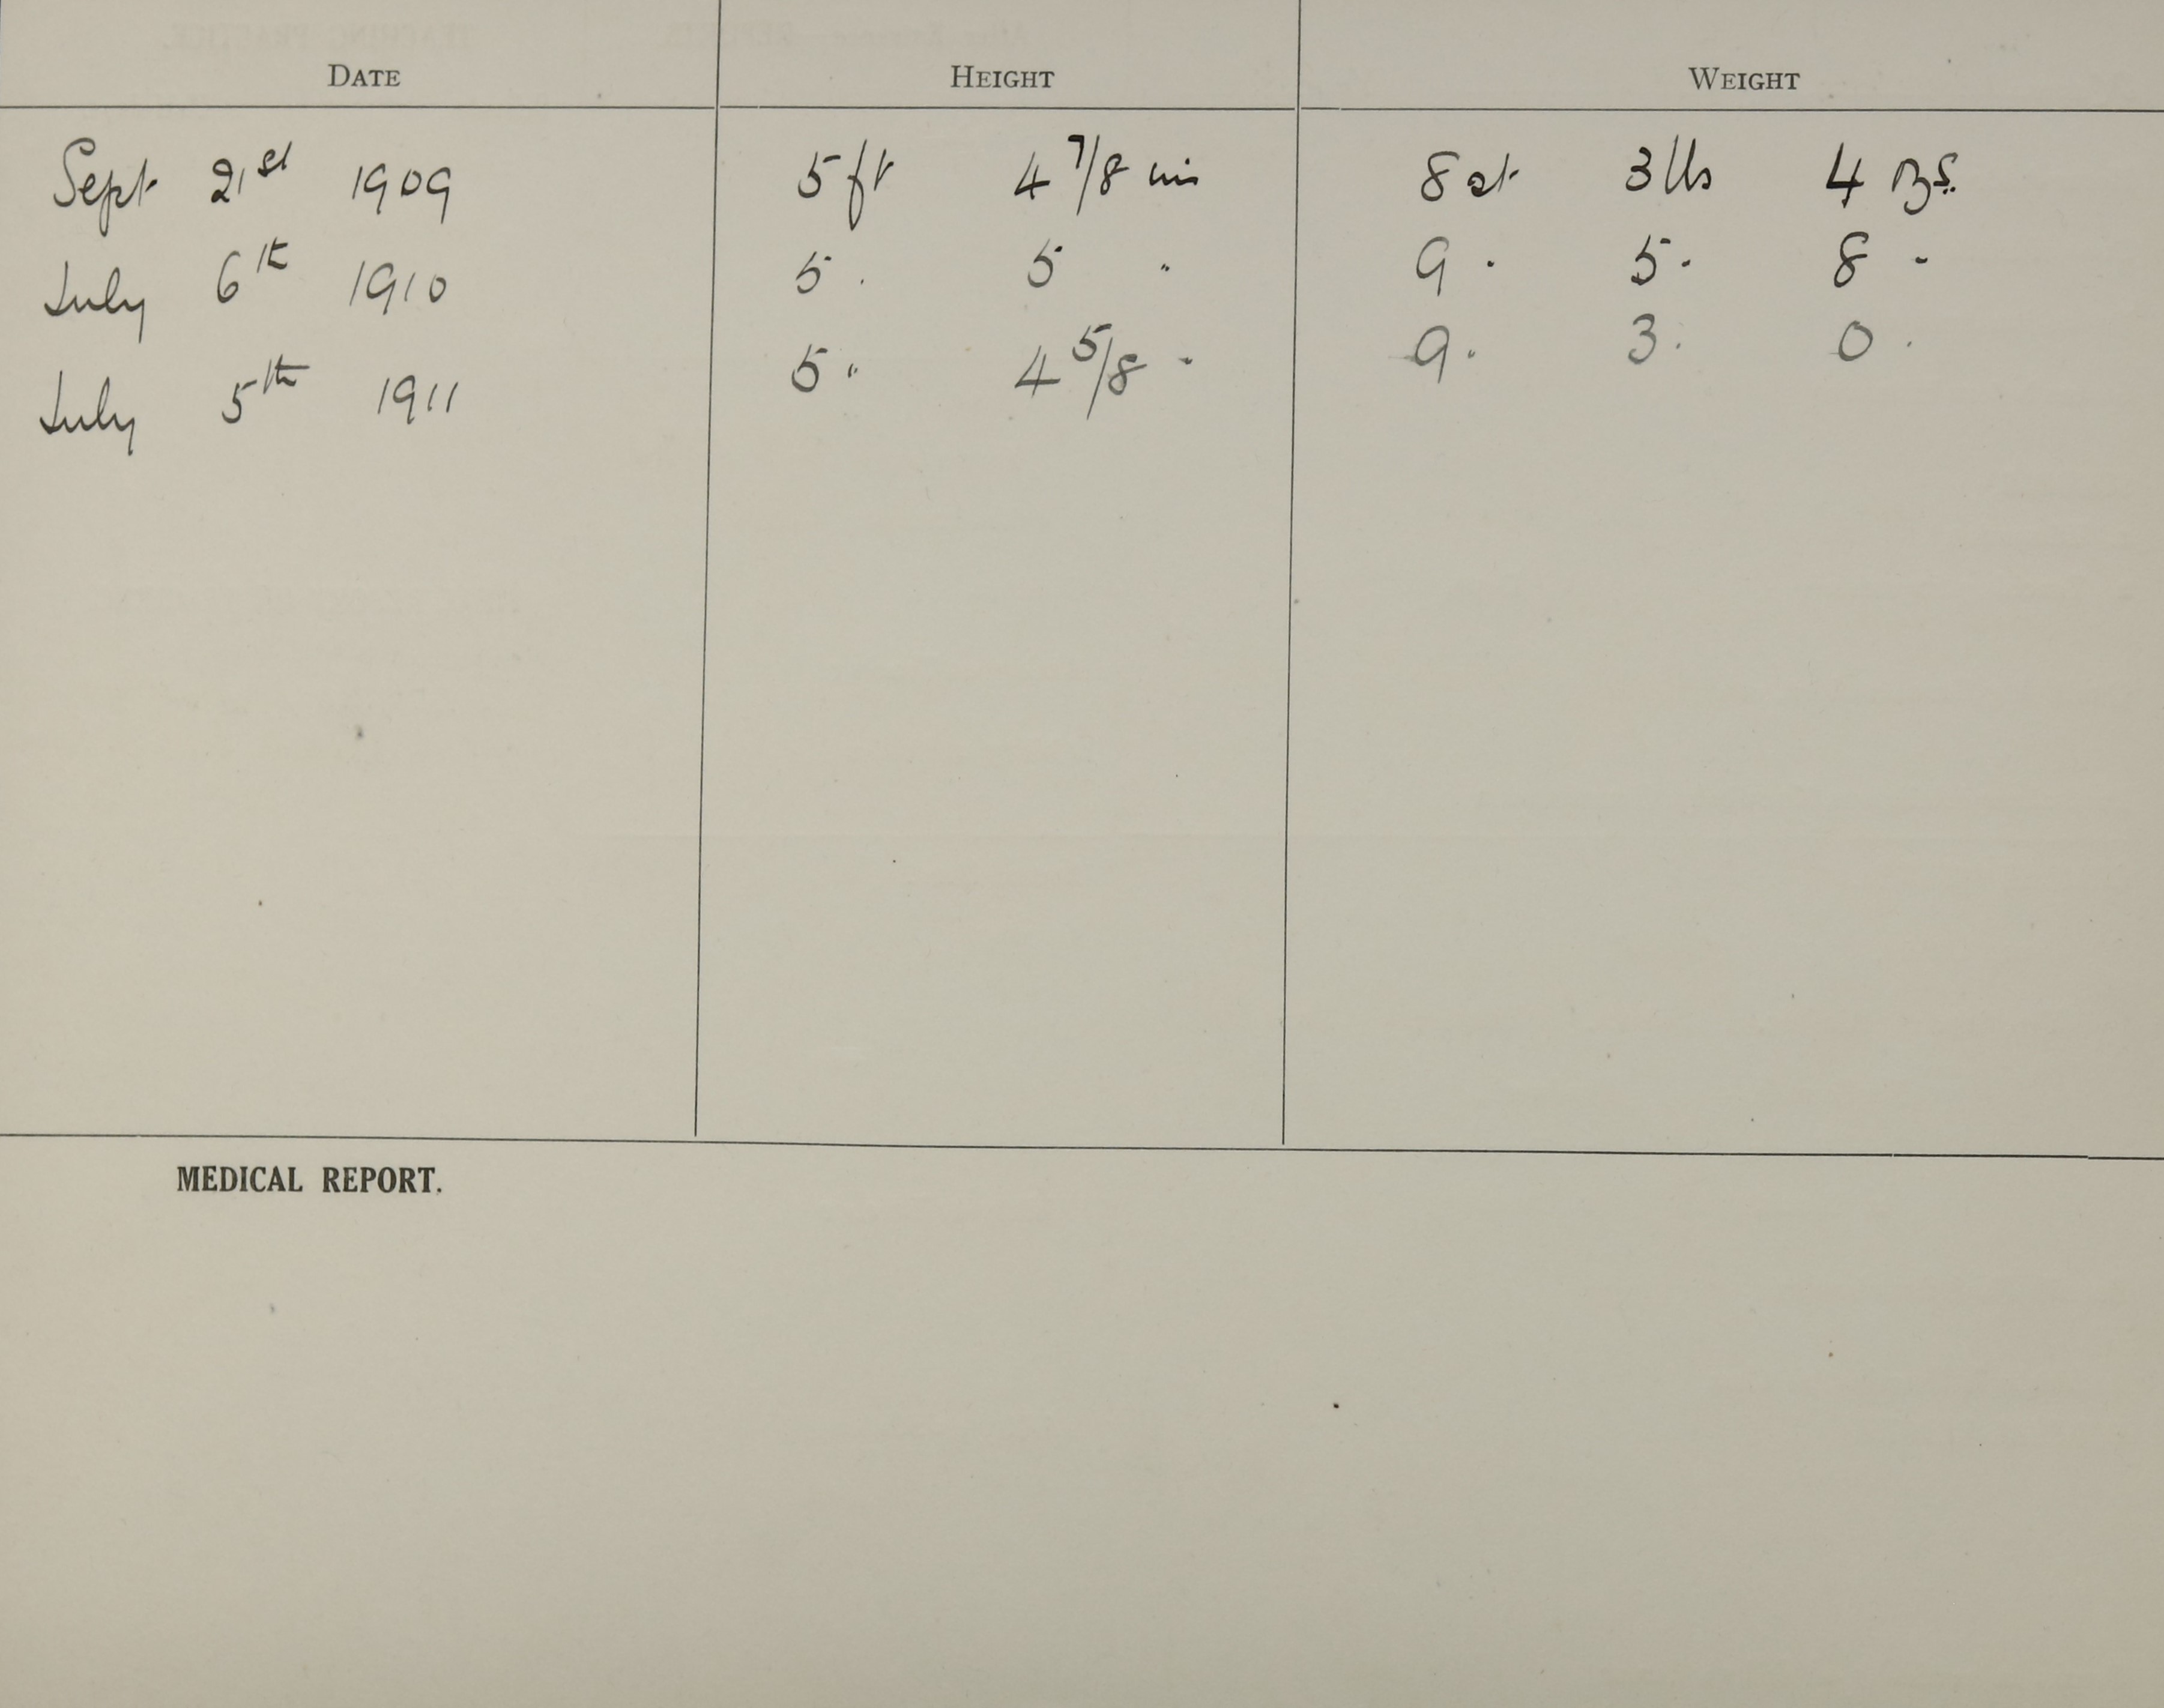 DATE HEIGHT WEIGHT
Sept 21st 1909 5 ft 4 7/8 ins 8 st 3 lbs 4 ozs.
July 6th 1910 5 . 5 " 9 . 5 . 8 "
July 5th 1911 5 " 4 5/8 " 9 . 3 . 0 .
MEDICAL REPORT.